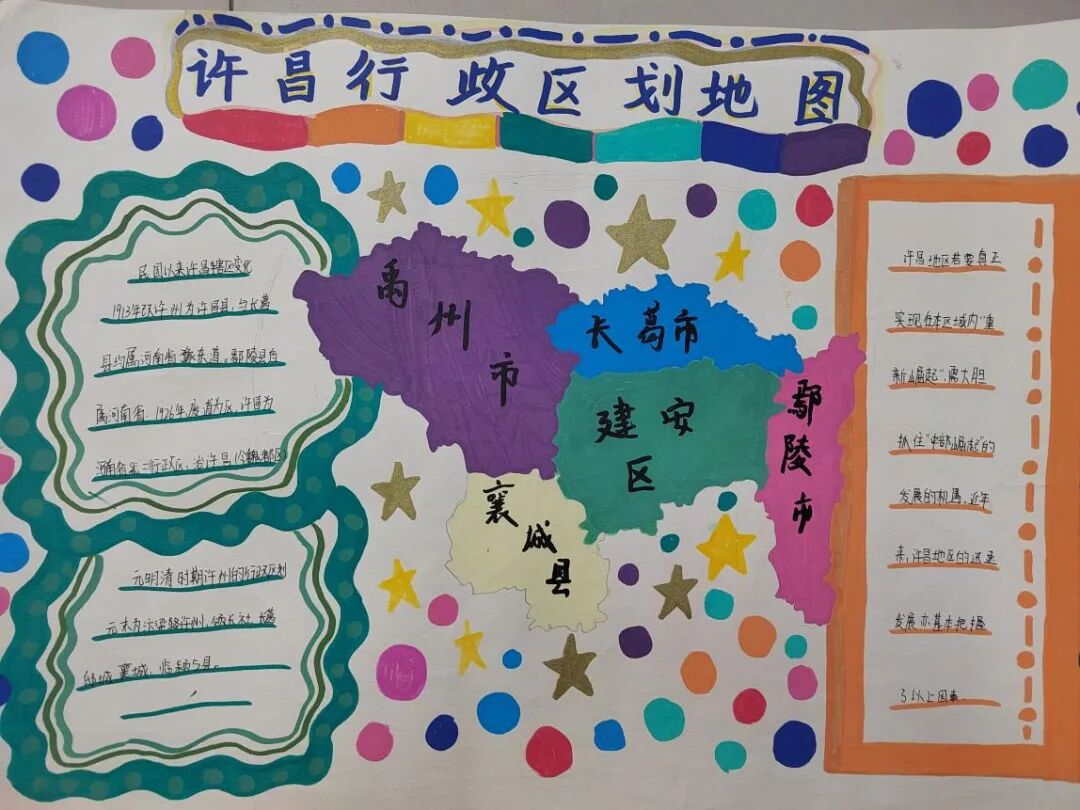 许昌行政区划地图
民国以来许昌辖区变化
1913年改许州为许昌县,与长葛
县均属河南省豫东道。鄢陵县自
属河南省。1926年废道为区,许昌为
河南省第二行政区,治许昌(今魏都区)
元明清时期许州的行政区划
元末为汴梁路许州,领长社、长葛
郾城、襄城、临颍5县。
禹州市
长葛市
建安区
鄢陵市
襄城县
许昌地区若要真正
实现在本区域内"重
新崛起",需大胆
抓住"中部崛起"的
发展的机遇,近年
来,许昌地区的还是
发展亦基本把握
了以上因素